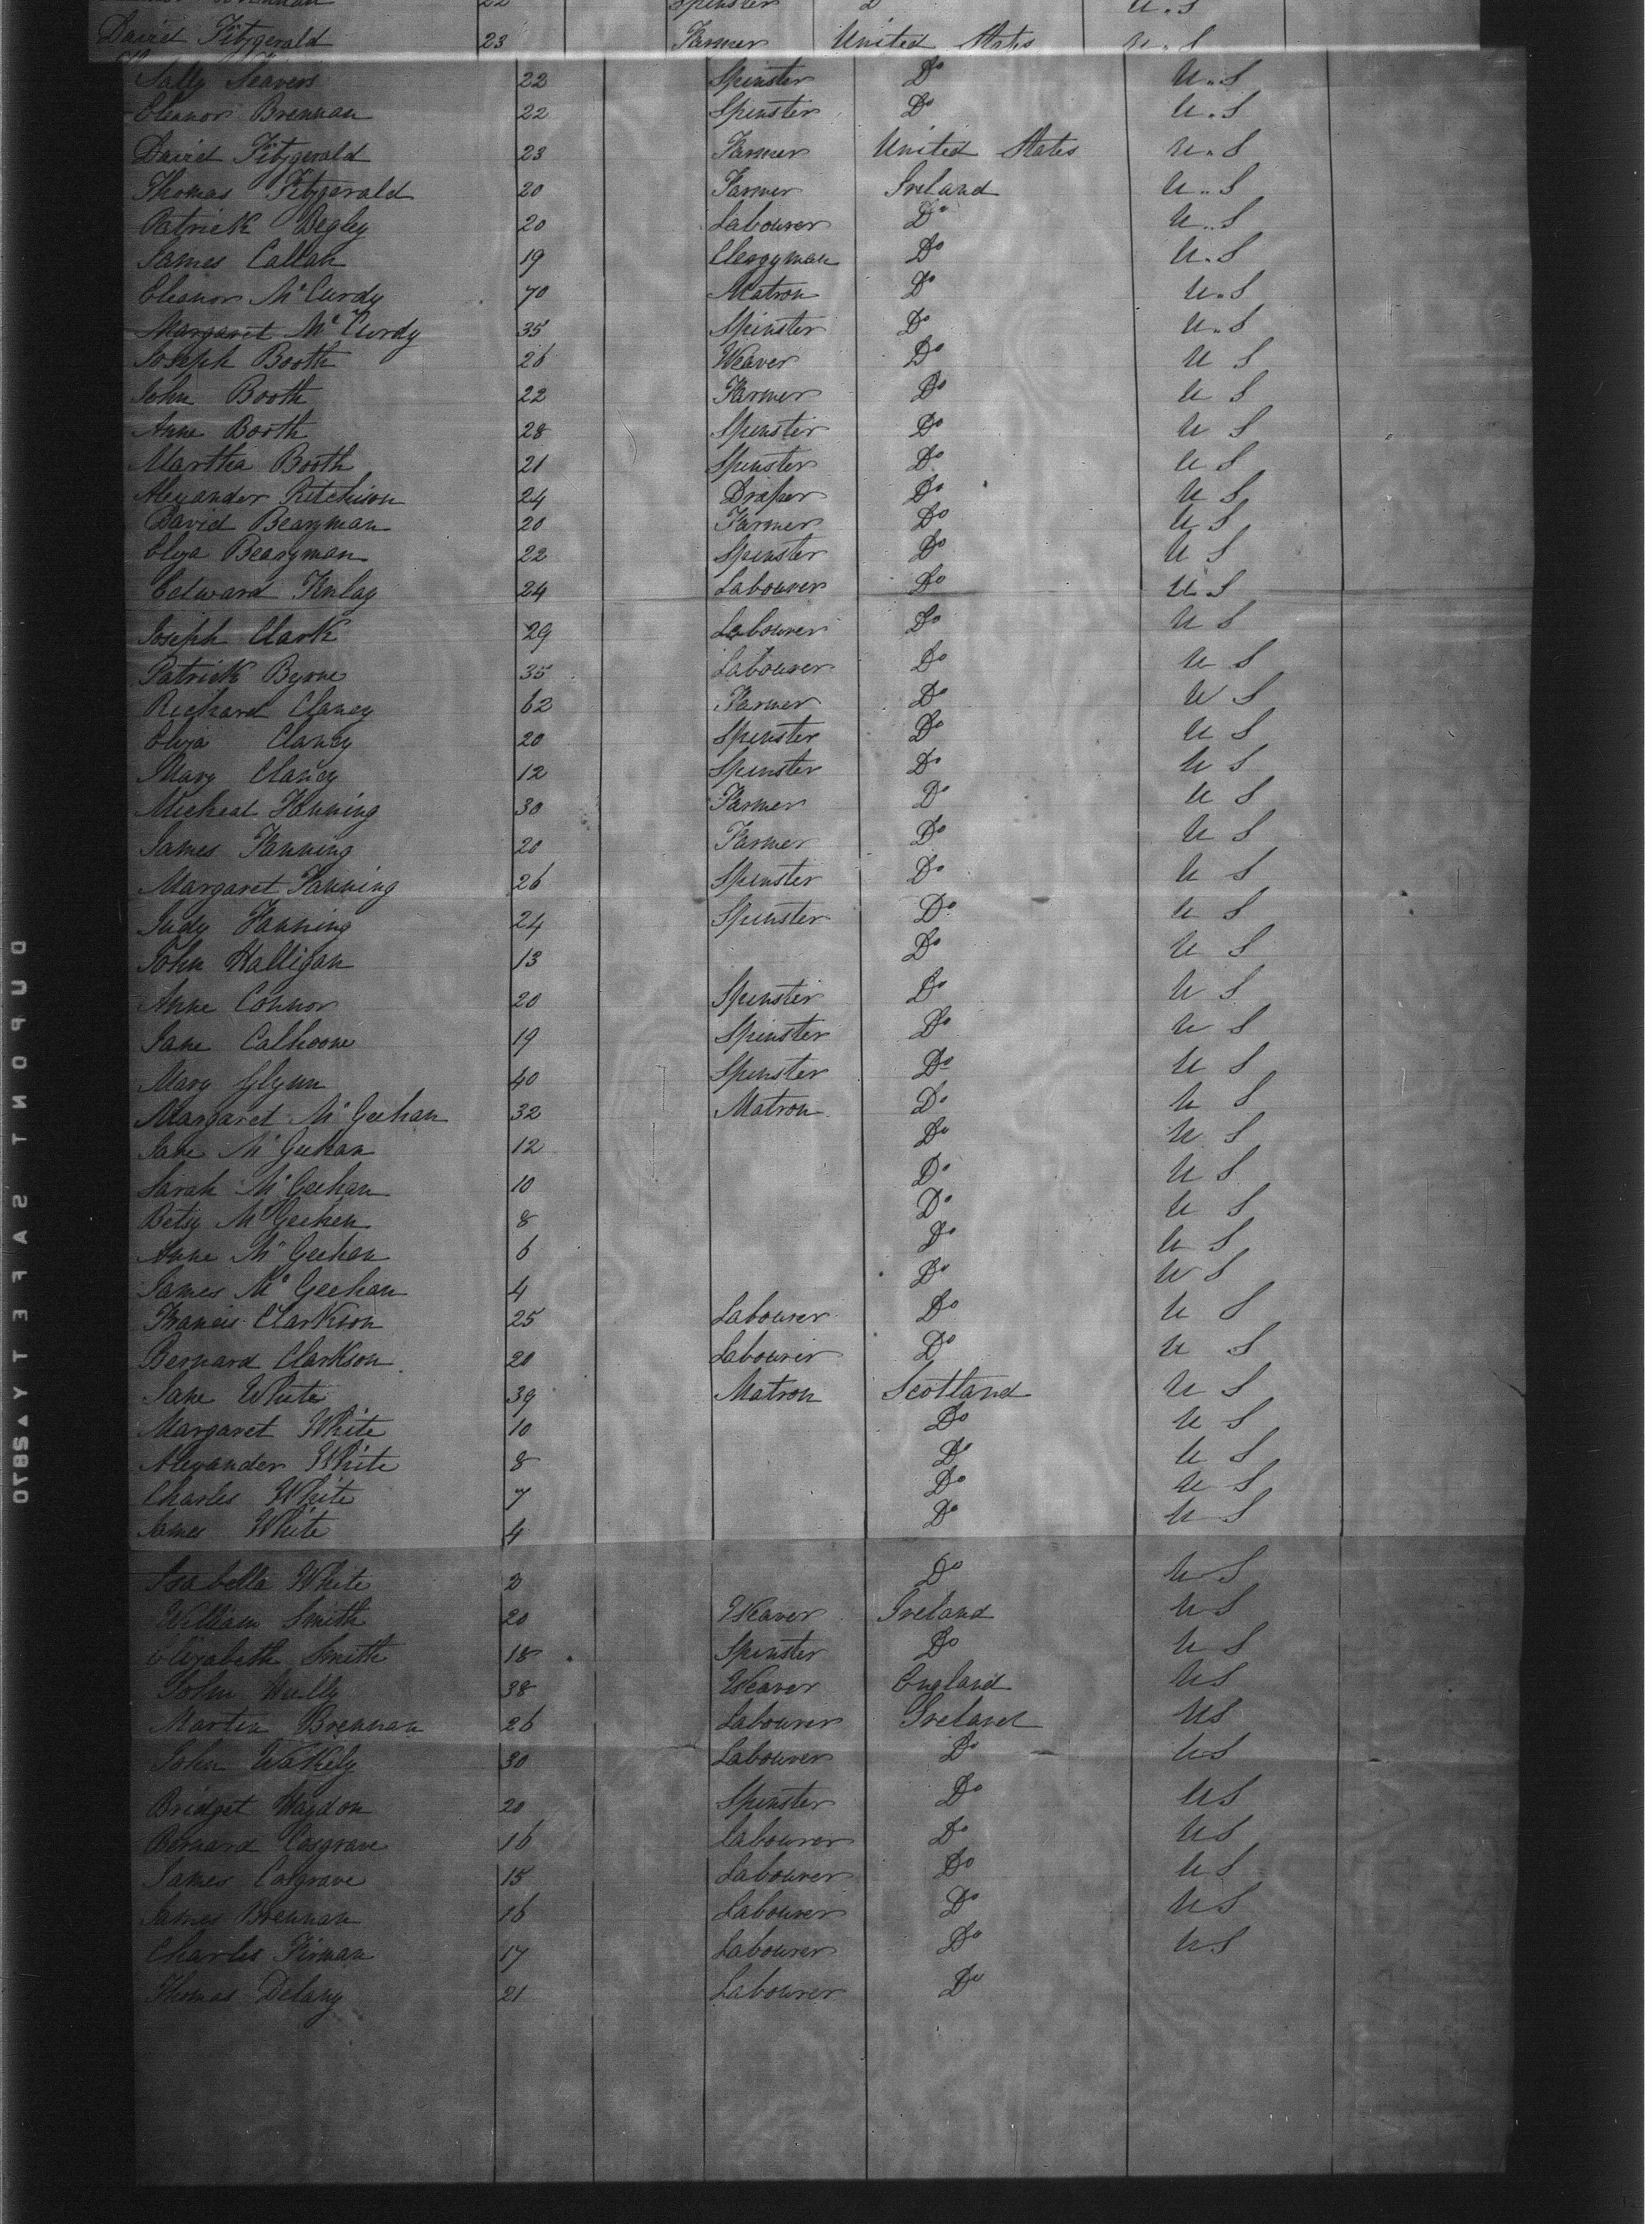 22 Spinster D U.S
David Fitzgerald 23 Farmer United States U.S
Sally Seavers 22 Spinster Do U.S
Eleanor Brennan 22 Spinster Do U.S
David Fitzgerald 23 Farmer United States U.S
Thomas Fitzgerald 20 Farmer Ireland U.S
Patrick Begley 20 Labourer Do U.S
James Callan 19 Clergyman Do U.S
Eleanor McCurdy 70 Matron Do U.S
Margaret McCurdy 35 Spinster Do U.S
Joseph Booth 26 Weaver Do U S
John Booth 22 Farmer Do U S
Anne Booth 28 Spinster Do U S
Martha Booth 21 Spinster Do U S
Alexander Ritchison 24 Draper Do U S
David Bearyman 20 Farmer Do U S
Eliza Bearyman 22 Spinster Do U S
Edward Finlay 24 Labourer Do U.S
Joseph Clark 29 Labourer Do U S
Patrick Byrne 35 Labourer Do U S
Richard Clancy 62 Farmer Do U S
Eliza Clancy 20 Spinster Do U S
Mary Clancy 12 Spinster Do U S
Micheal Fanning 30 Farmer Do U S
James Fanning 20 Farmer Do U S
Margaret Fanning 26 Spinster Do U S
Judy Fanning 24 Spinster Do U S
John Halligan 13 Do U S
Anne Connor 20 Spinster Do U S
Jane Calhoone 19 Spinster Do U S
Mary Glynn 40 Spinster Do U S
Margaret McGeehan 32 Matron Do U S
Jane McGeehan 12 Do U S
Sarah McGeehan 10 Do U S
Betsy McGeehen 8 Do U S
Anne McGeehan 6 Do U S
James McGeehan 4 Do U S
Francis Clarkson 25 Labourer Do U S
Bernard Clarkson 20 Labourer Do U S
Jane White 39 Matron Scotland U S
Margaret White 10 Do U S
Alexander White 8 Do U S
Charles White 7 Do U S
James White 4 Do U S
Isabella White 2 Do U S
William Smith 20 Weaver Ireland U S
Elizabeth Smith 18 Spinster Do U S
John Hully 38 Weaver England U S
Martin Brennan 26 Labourer Ireland U S
John Wakely 30 Labourer Do U S
Bridget Haydon 20 Spinster Do U S
Bernard Cosgrave 16 Labourer Do U S
James Cosgrave 15 Labourer Do U S
James Brennan 16 Labourer Do U S
Charles Firman 17 Labourer Do U S
Thomas Delany 21 Labourer Do